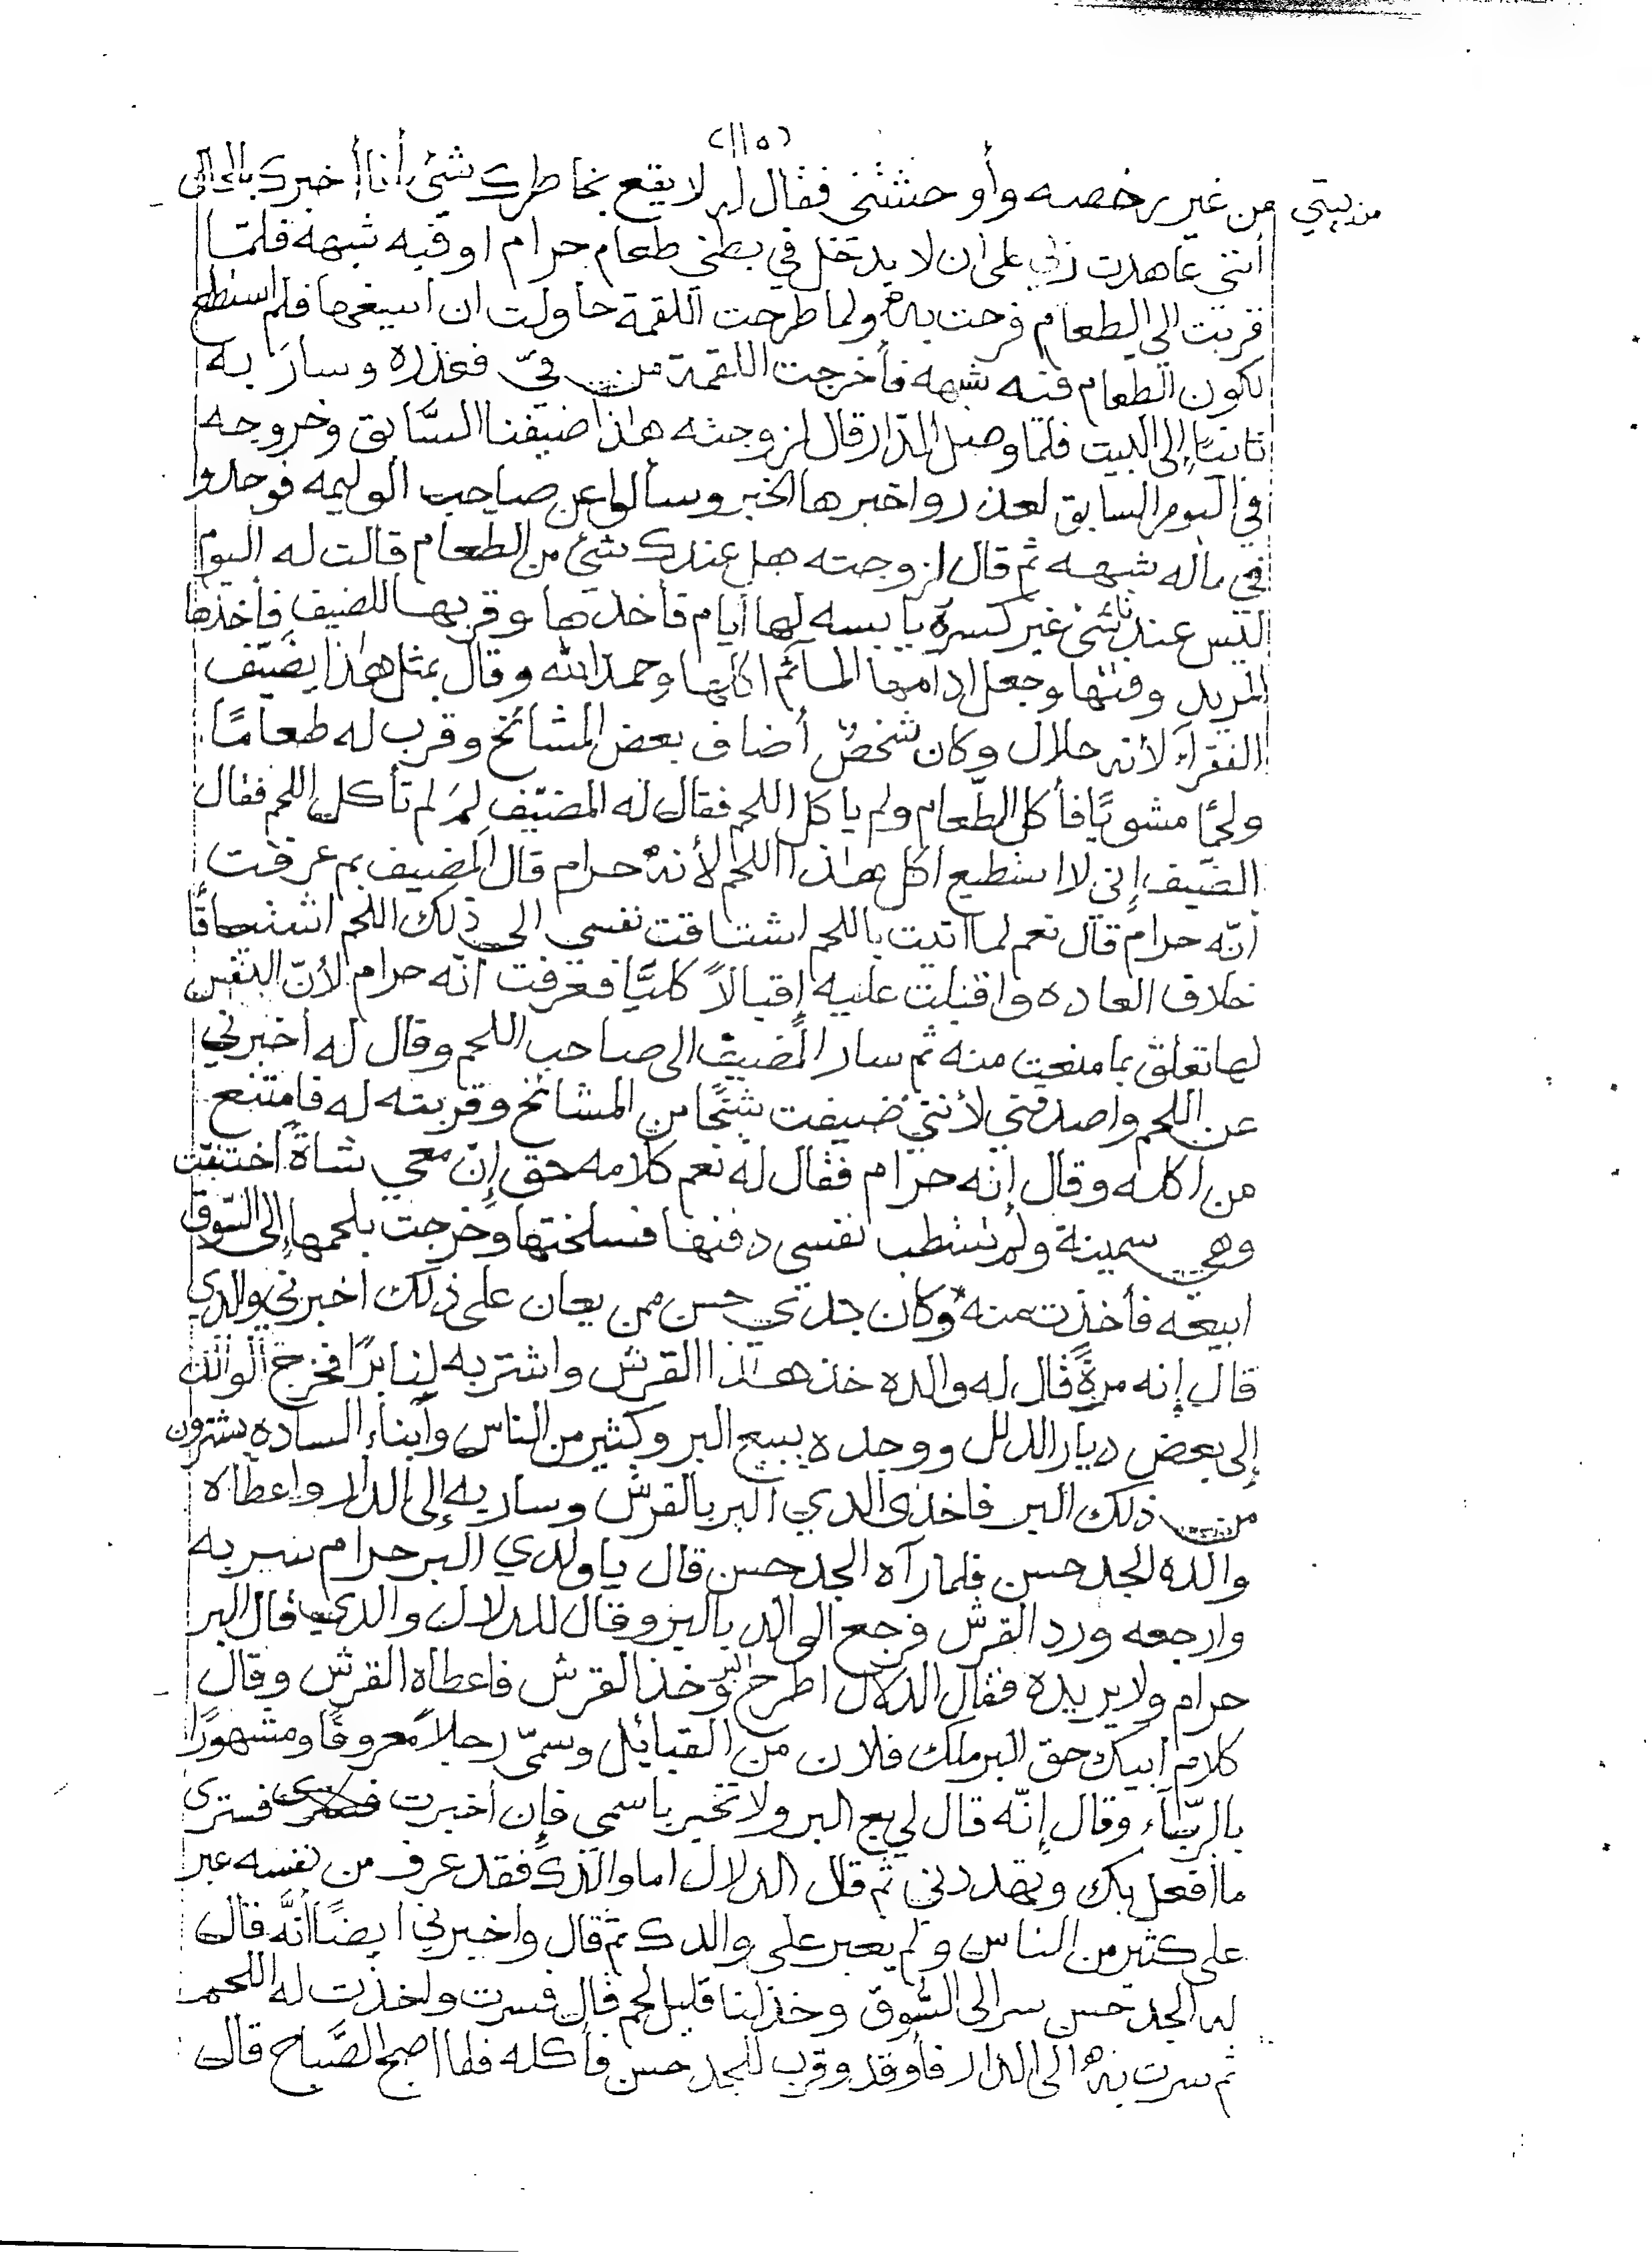 (١١٥)
من بيتي من غير رخصه وأوحشتني فقال له لا يقع بخاطرك شئ أنا أخبرك بالحال
أنني عاهدت ربي على ان لا يدخل في بطني طعام حرام او فيه شبهه فلمّا
قربت إلي الطعام فرحت به ولما طرحت اللقمة حاولت ان اسيغها فلم استطع
لكون الطعام فيه شبهه فأخرجت اللقمة من فيّ فعذره وسارَ به
ثانيًا إلى البيت فلمّا وصل الدّار قال لزوجته هذا ضيفنا السَّابق وخروجه
في اليوم السابق لعذر واخبرها الخبر وسألوا عن صاحب الوليمه فوجدوا
في ماله شبهه ثم قال لزوجته هل عندك شئ من الطعام قالت له اليوم
ليس عندنا شئ غير كسرة يابسه لها أيام فأخذها وقربها للضيف فأخذها
المريد وفتها وجعل إدامها الماء ثم اكلها وحمد الله وقال بمثل هذا يضيّف
الفقراء لأنه حلال وكان شخصٌ أضاف بعض المشائخ وقرب له طعامًا
ولحمًا مشويًا فأكل الطّعام ولم ياكل اللحم فقال له المضيّف لِمَ لم تأكل اللحم فقال
الضّيف إني لا استطيع أكل هذا اللحم لأنه حرام قال المضيف بم عرفت
أنّه حرام قال نعم لما أتيت باللحم اشتاقت نفسي الى ذلك اللحم اشتياقًا
خلاف العاده واقبلت عليه إقبالاً كليًّا فعرفت انّه حرام لأنّ النفس
لها تعلق بما منعت منه ثم سار المضيف الى صاحب اللحم وقال له أخبرني
عن اللحم واصدقني لأنني ضيفت شيخًا من المشائخ وقربته له فامتنع
من أكله وقال إنه حرام فقال له نعم كلامه حق إنّ معي شاةً اختنقت
وهي سمينة ولم تطب نفسي دفنها فسلختها وخرجت بلحمها إلى السّوق
ابيعه فأخذت منه وكان جدّي حسن ممن يعان على ذلك اخبرني والدي
قال إنه مرةً قال له والده خذ هذا القرش واشتر به لنا برًا فخرج الوالد
إلى بعض ديار الدلل ووجده يبيع البر وكثير من الناس وأبناء الساده يشترون
من ذلك البر فاخذ والدي البر بالقرش وسار به إلى الدار واعطاه
والده الجد حسن فلما رآه الجد حسن قال يا ولدي البر حرام سر به
وارجعه ورد القرش فرجع الوالد بالبر وقال للدلال والدي قال البر
حرام ولا يريده فقال الدلال اطرح البر وخذ القرش فاعطاه القرش وقال
كلام أبيك حق البر ملك فلان من القبائل وسمّى رجلاً معروفًا ومشهورًا
بالرّباء وقال إنّه قال لي بع البر ولا تخبر باسمي فإن أخبرت فسترى
ما أفعل بك ويهددني ثم قال الدلال اما والدك فقد عرف من نفسه عبر
على كثير من الناس ولم يعبر على والدك ثم قال واخبرني ايضًا أنَّه قال
له الجد حسن سر الى السّوق وخذ لنا قليل لحم قال فسرت واخذت له اللحم
ثم سرت به الى الدار فأوقد وقرب للجد حسن فأكله فلما اصبح الصَّباح قال